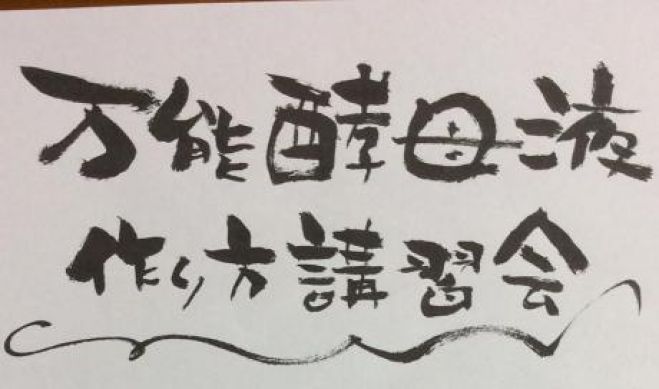 万能酵母液
作り方講習会